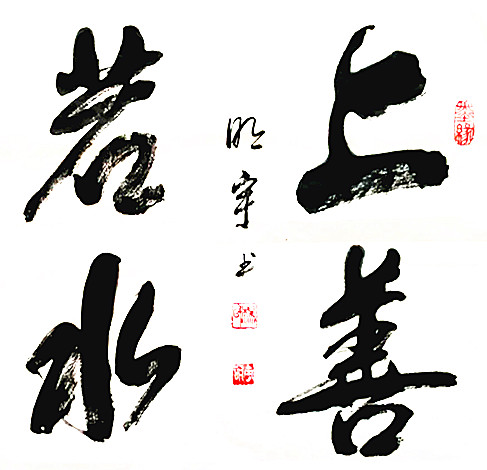 上善
若水
明宇书